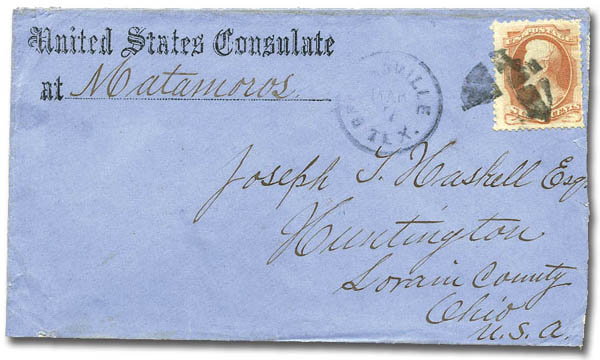 United States Consulate
at Matamoros.
BROWNSVILLE
MAR
7
TEX.
U.S. POSTAGE
Joseph S. Haskell Esq.
Huntington
Lorain County
Ohio
U.S.A.